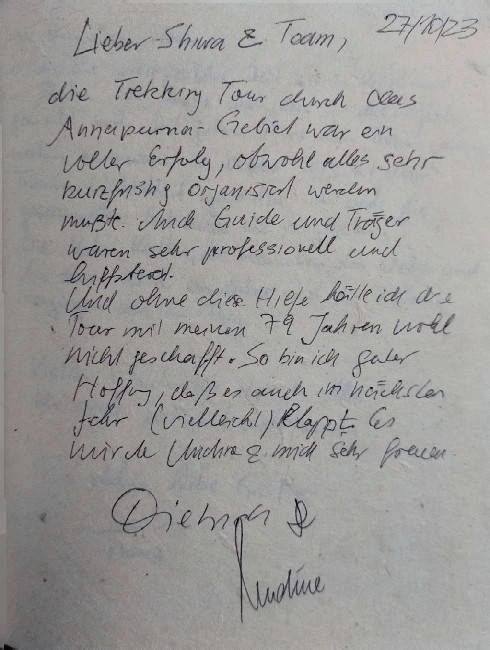 27/10/23
Lieber Shiva & Team,
die Trekking Tour durch das
Annapurna-Gebiet war ein
voller Erfolg, obwohl alles sehr
kurzfristig organisiert werden
mußte. Auch Guide und Träger
waren sehr professionell und
hilfsbereit.
Und ohne diese Hilfe hätte ich die
Tour mit meinen 79 Jahren wohl
nicht geschafft. So bin ich guter
Hoffng, daß es auch im nächsten
Jahr (vielleicht) klappt. Es
würde Undine & mich sehr freuen.
Dietrich &
Undine